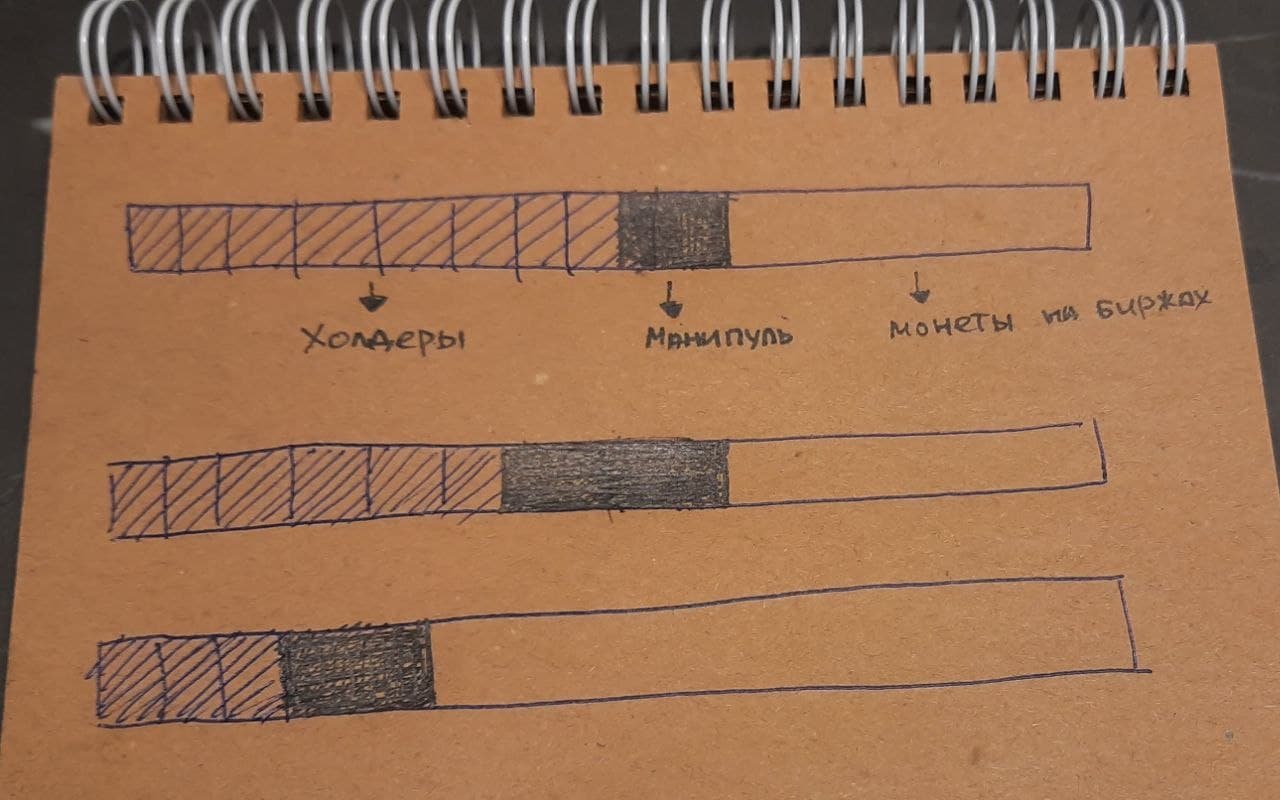 Холдеры Манипуль монеты на биржах